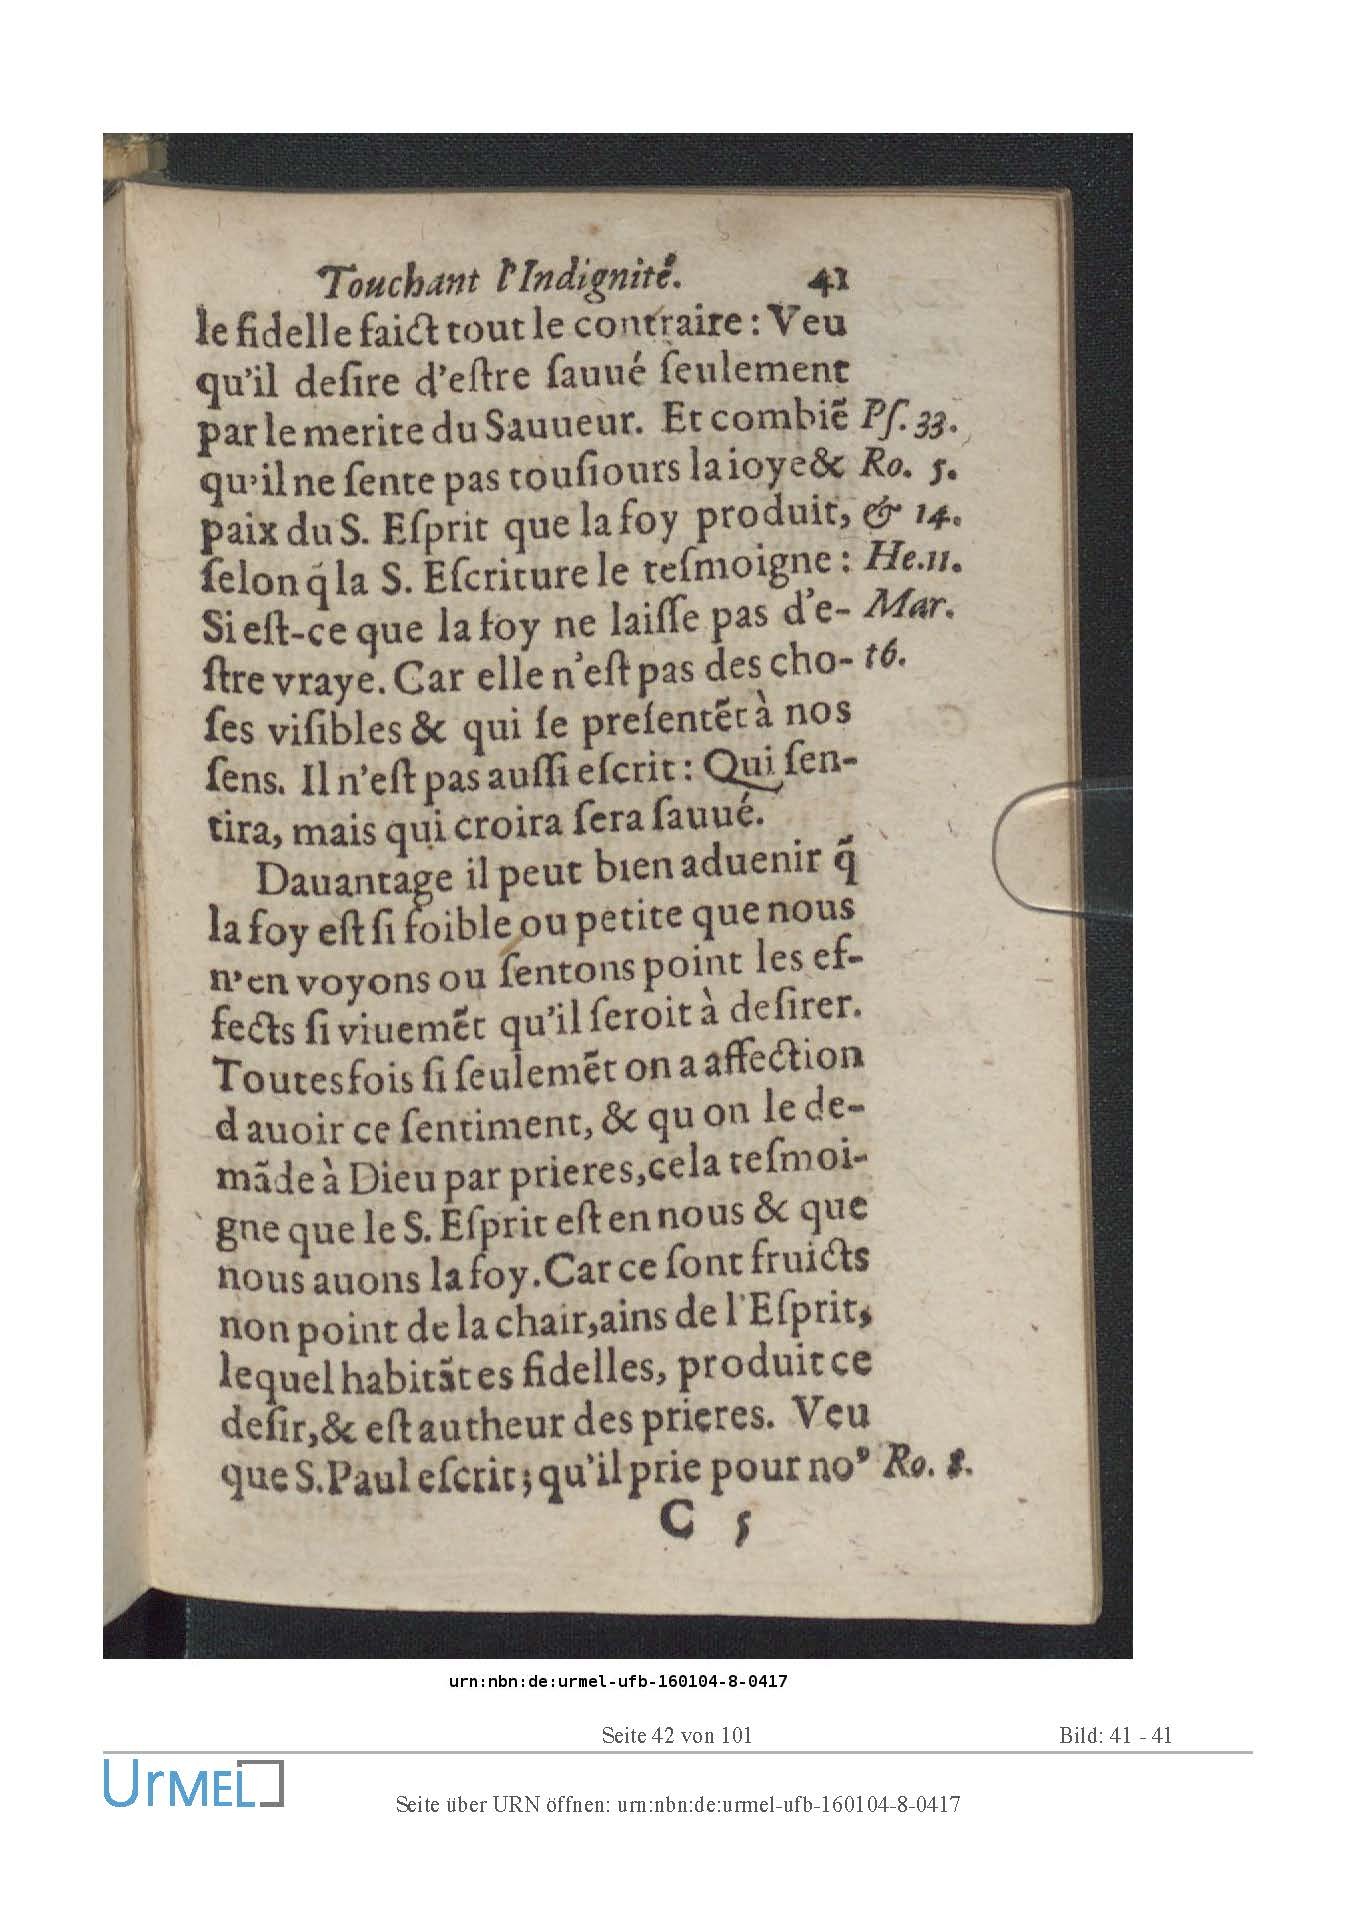 Touchant l'Indignité. 41
le fidelle faict tout le contraire : Veu
qu'il deſire d'eſtre ſauué ſeulement
par le merite du Sauueur. Et combiẽ Pſ. 33.
qu'il ne ſente pas touſiours la ioye & Ro. 5.
paix du S. Eſprit que la foy produit, & 14.
ſelon q̃ la S. Eſcriture le teſmoigne : He. 11.
Si eſt-ce que la foy ne laiſſe pas d'e- Mar.
ſtre vraye. Car elle n'eſt pas des cho- 16.
ſes viſibles & qui ſe preſentẽt à nos
ſens. Il n'eſt pas auſſi eſcrit : Qui ſen-
tira, mais qui croira ſera ſauué.
Dauantage il peut bien aduenir q̃
la foy eſt ſi foible ou petite que nous
n'en voyons ou ſentons point les ef-
fects ſi viuemẽt qu'il ſeroit à deſirer.
Toutesfois ſi ſeulemẽt on a affection
d auoir ce ſentiment, & qu on le de-
mãde à Dieu par prieres, cela teſmoi-
gne que le S. Eſprit eſt en nous & que
nous auons la foy. Car ce ſont fruicts
non point de la chair, ains de l'Eſprit,
lequel habitãt es fidelles, produit ce
deſir, & eſt autheur des prieres. Veu
que S. Paul eſcrit ; qu'il prie pour noꝰ Ro. 8.
C 5
urn:nbn:de:urmel-ufb-160104-8-0417
Seite 42 von 101 Bild: 41 - 41
UrMEL
Seite über URN öffnen: urn:nbn:de:urmel-ufb-160104-8-0417